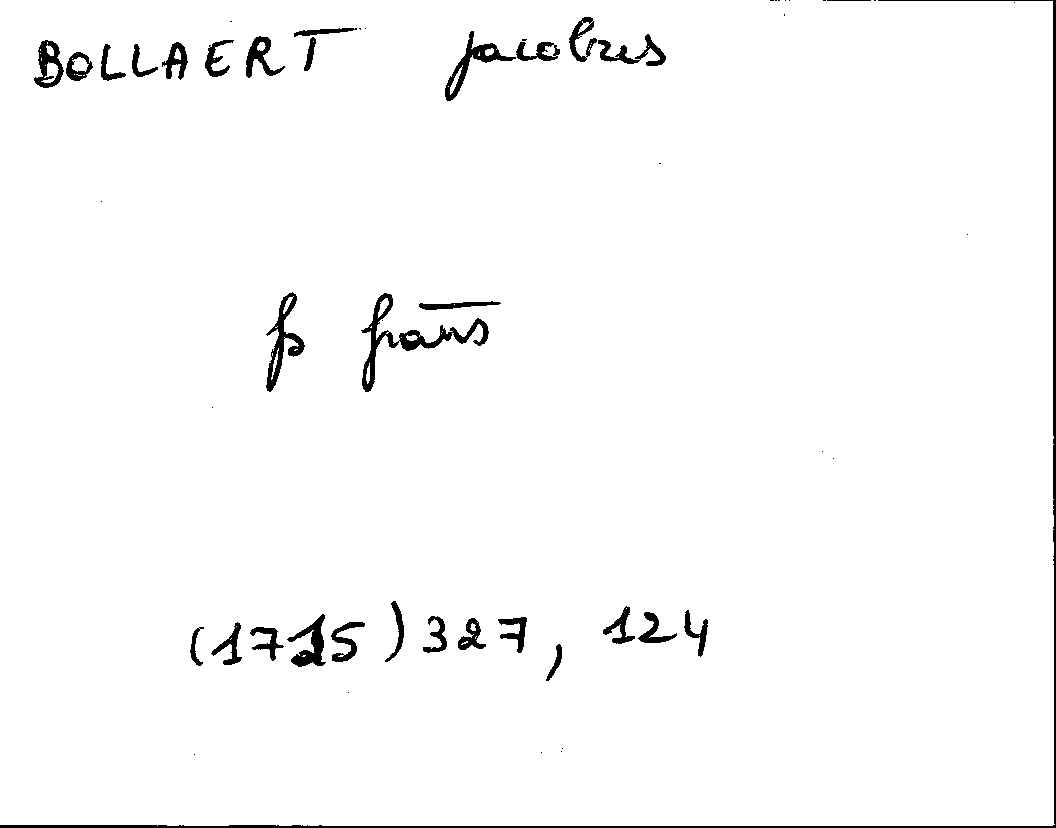 BOLLAERT Jacobus
fs frans
(1725) 327, 124